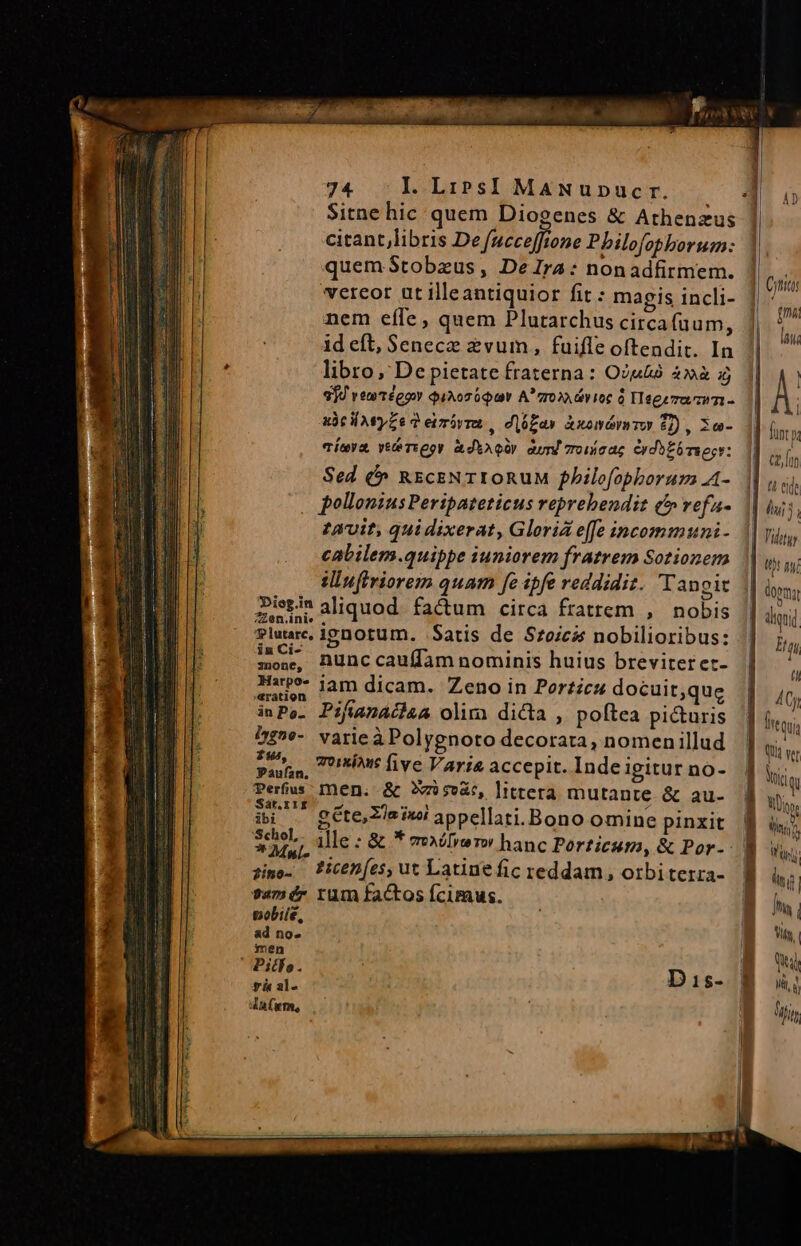 74 I. LIPSI MANUDUCT.
Sitne hic quem Diogenes & Athenæus
citant, libris De ſucceſſione Philoſophorum:
quem Stobæus, De Ira: non adfirmem.
vereor ut ille antiquior ſit: magis incli-
nem eſſe, quem Plutarchus circa ſuum,
id eſt, Senecæ ævum, fuiſſe oſtendit. In
libro, De pietate fraterna:
Sed & RECENTIORUM philoſophorum A-
polloniusPeripateticus reprehendit & refu-
tavit, qui dixerat, Gloriâ eſſe incommuni-
cabilem. quippe iuniorem fratrem Sotionem
illuſtriorem quam ſe ipſe reddidit. Tangit
aliquod factum circa fratrem, nobis
ignotum. Satis de Stoicis nobilioribus:
nunc cauſſam nominis huius breviter et-
iam dicam. Zeno in Porticu docuit, que
Piſianactæa olim dicta, poſtea picturis
varie à Polygnoto decorata, nomen illud
ποικίλης ſive Varia accepit. Inde igitur no-
men. & littera mutante & au-
appellati. Bono omine pinxit
ille: & * hanc Porticum, & Por-
ticenſes, ut Latine ſic reddam, orbi terra-
rum factos ſcimus.
Dis-
Diog. in
Zen. ini.
Plutarc.
in Ci-
mone,
Harpo-
cration
in Po-
lygno-
tus,
Pauſan.
Perſius
Sat. III
ibi
Schol.
* Mul-
tino-
tam &
nobilē,
ad no-
men
al-